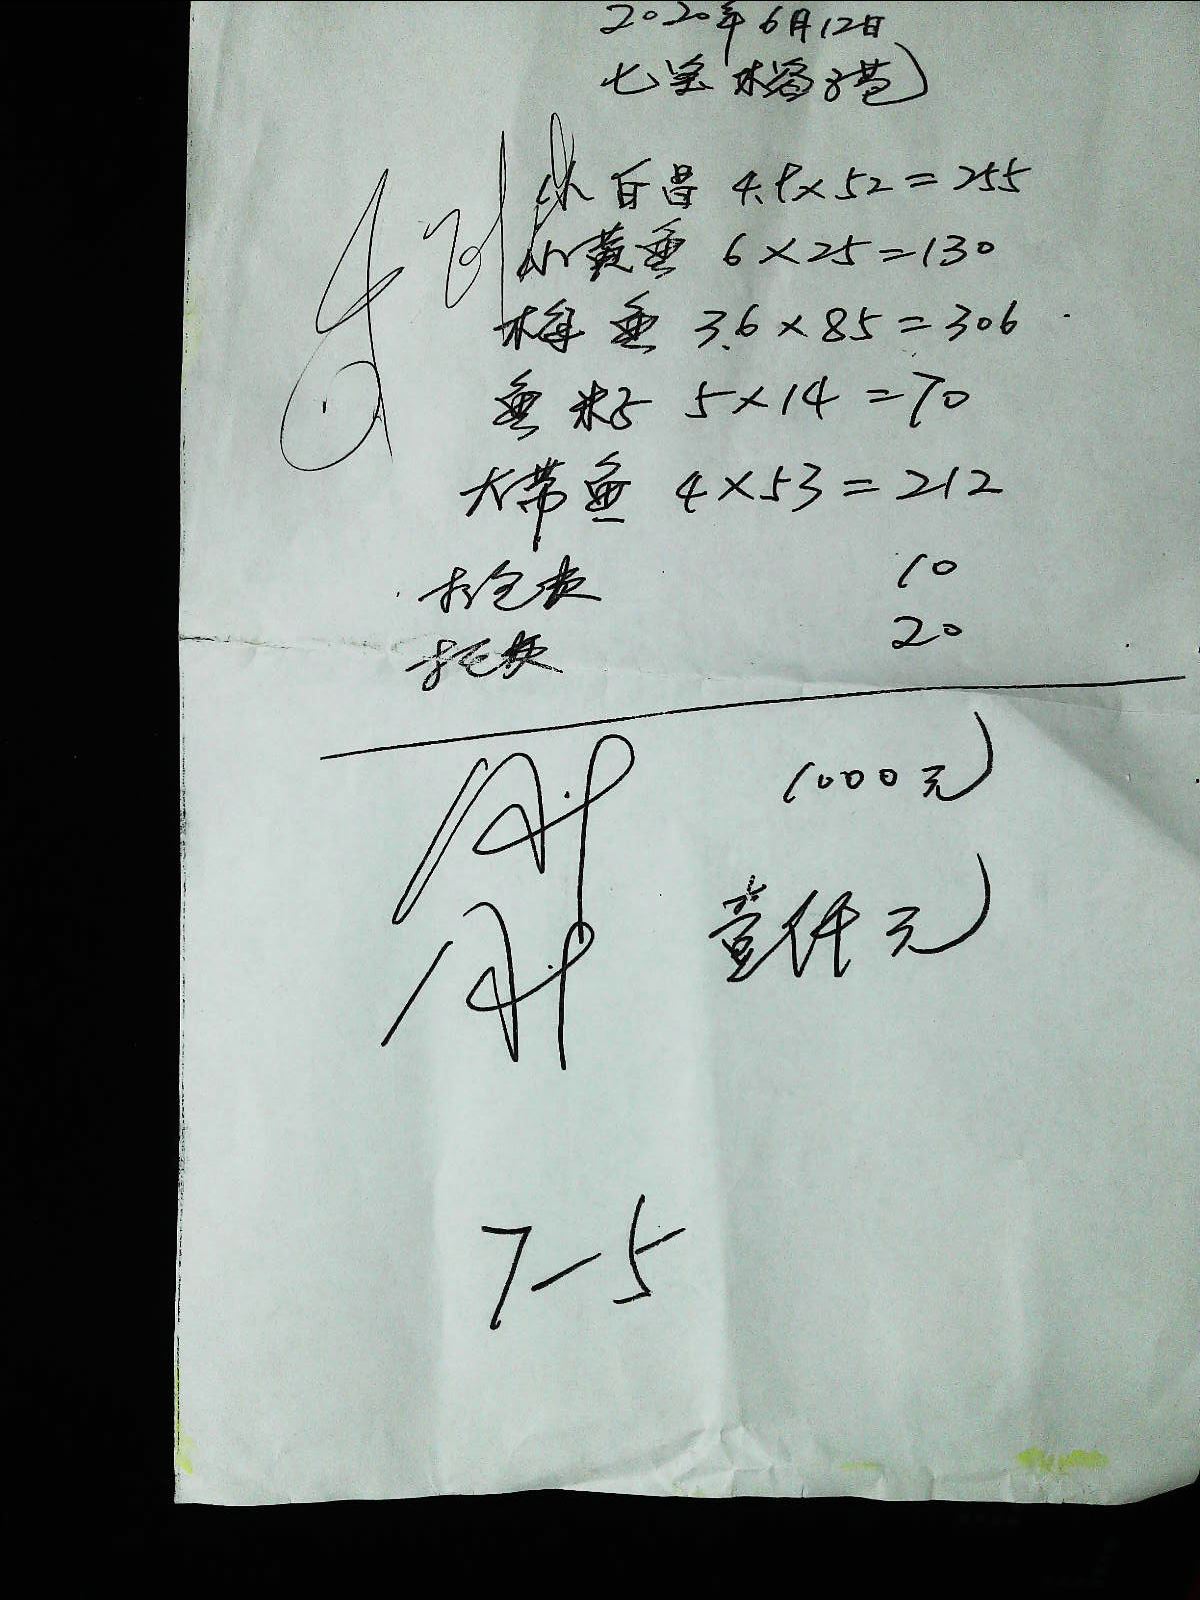 2020年6月12日
七宝
小白昌 4.9×52=255
小黄鱼 6×25=130
梅鱼 3.6×85=306
鱼籽 5×14=70
大带鱼 4×53=212
打包费 10
托费 20
1000元
壹仟元
7-5